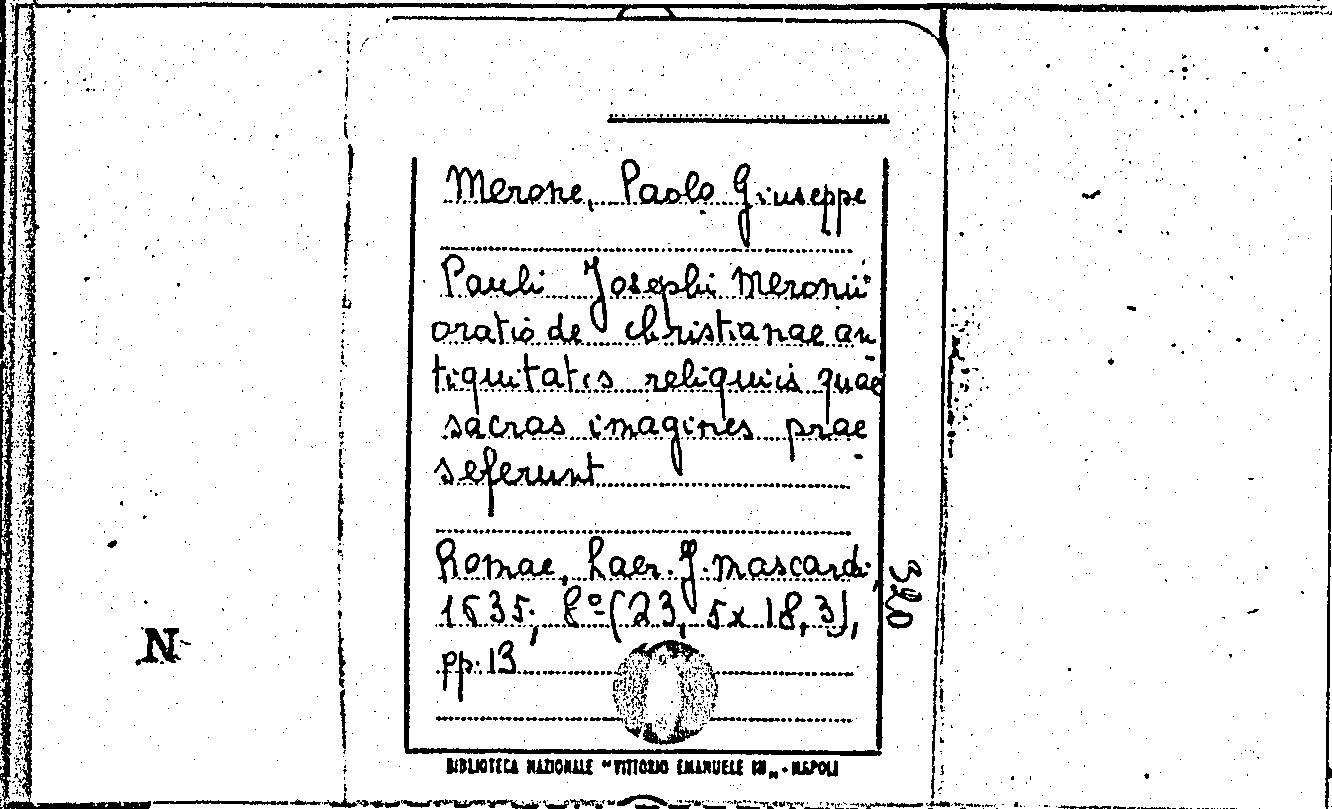 Merone, Paolo Giuseppe
Pauli Josephi Meronii
oratio de christianae an
tiquitatis reliquiis quae
sacras imagines prae
seferunt
Romae, haer. J. Mascardi,
1635; 8º (23,5x18,3),
pp. 13
320
N
BIBLIOTECA NAZIONALE "VITTORIO EMANUELE III" - NAPOLI